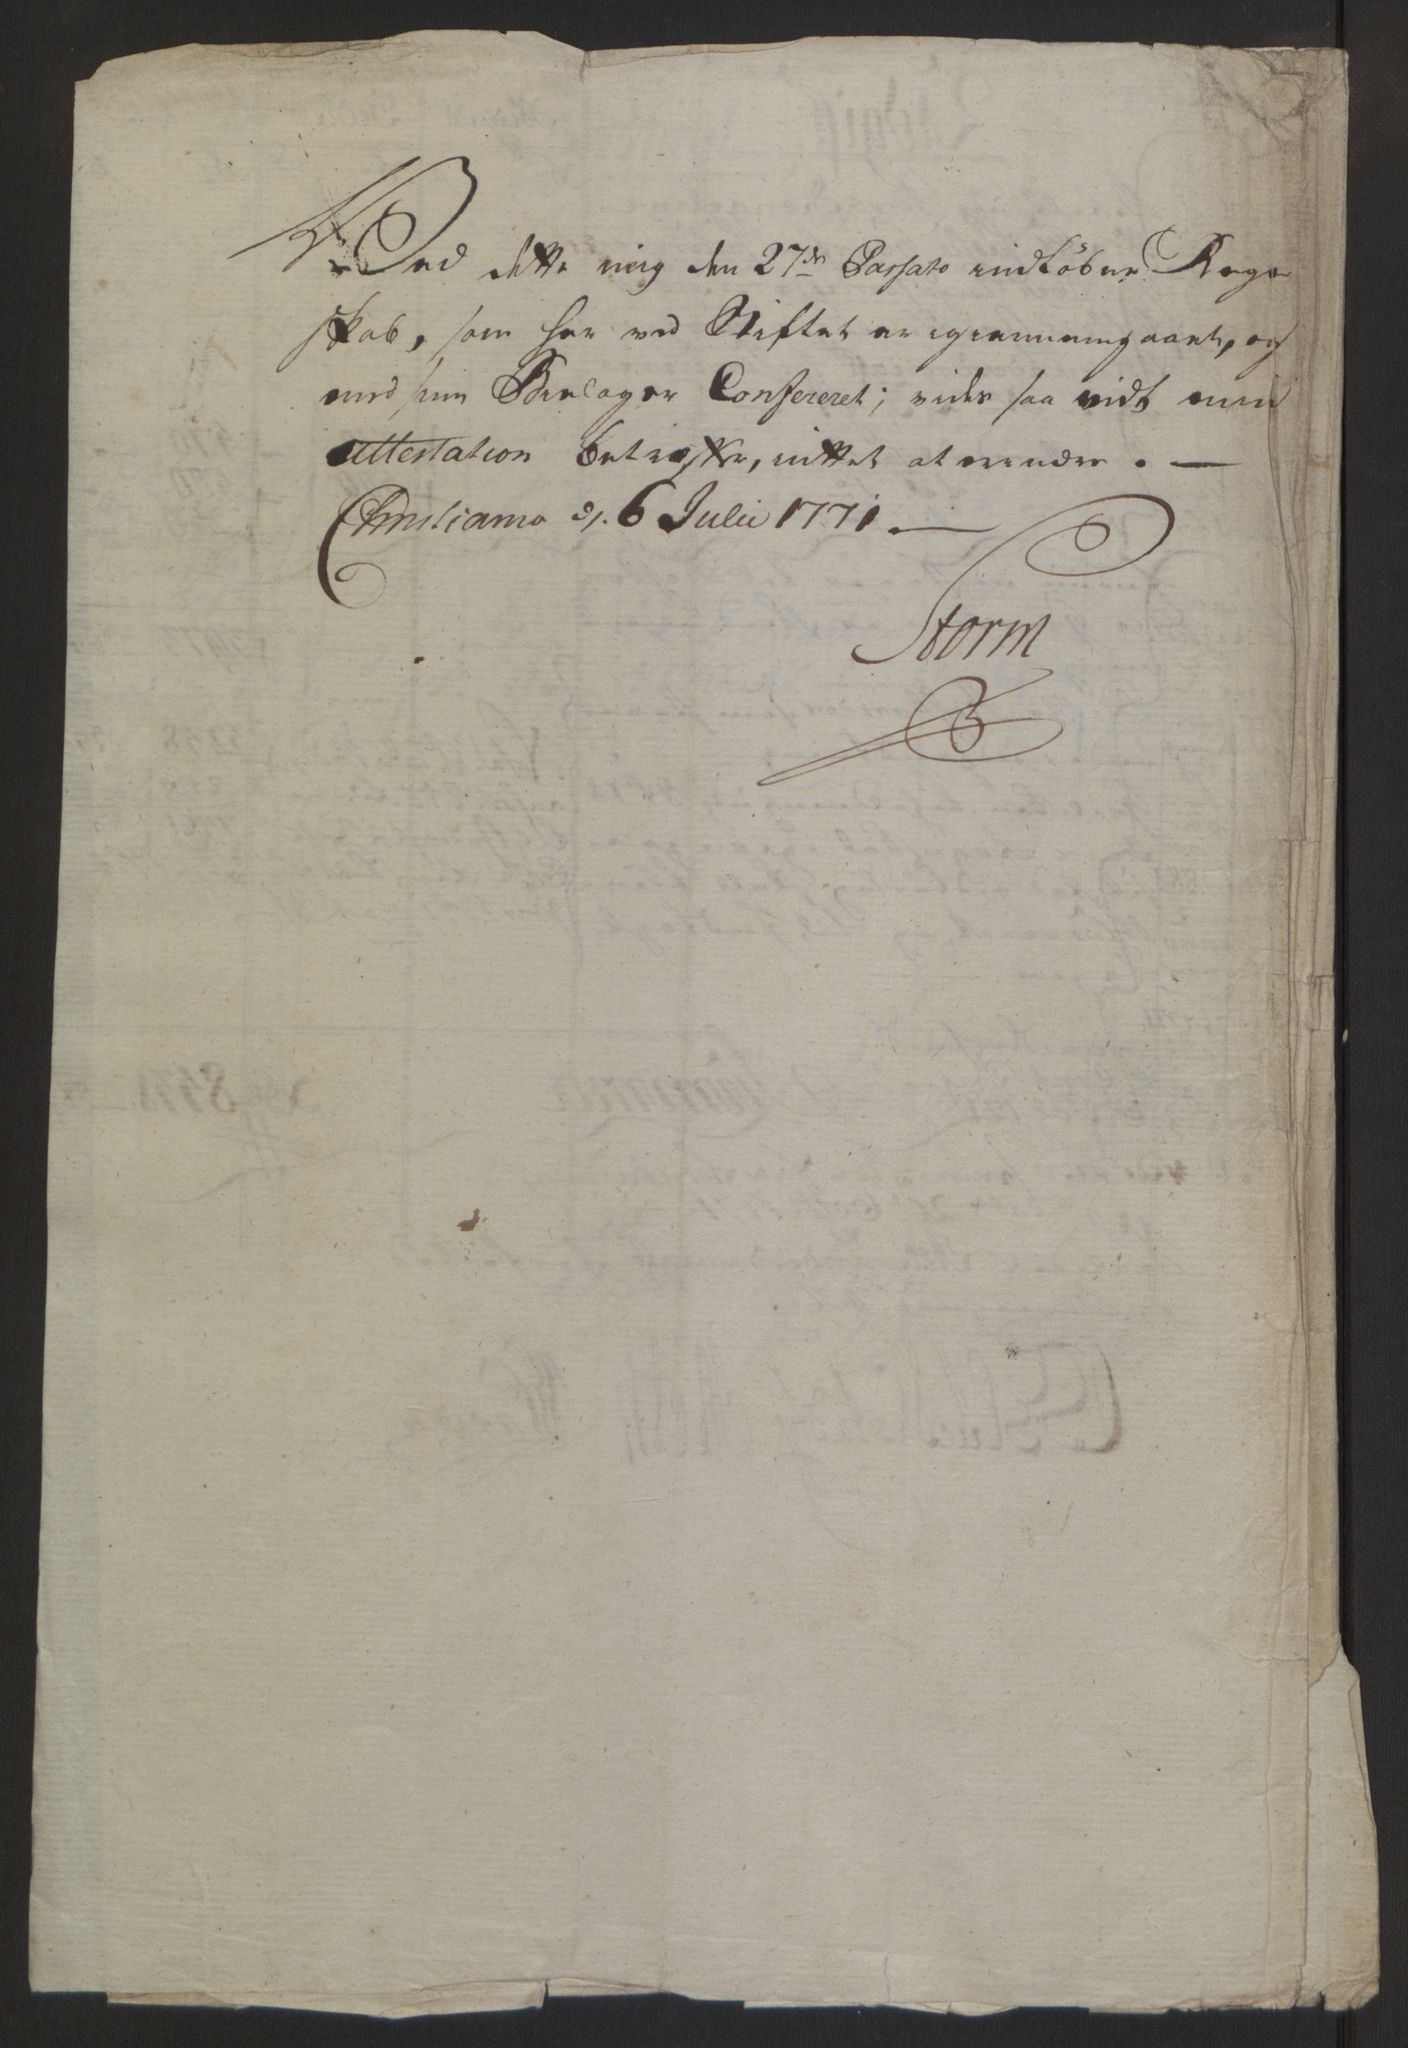 Ved dette mig den 27de Passato indløbne Regn-
skab, som her ved Stiftet er igiennemgaaet, og
med sine Bielager Confereret; vides saa vidt min
Attestation betræffer, intet at erindre. —
Christiania d. 6 Julii 1771. —
Storm